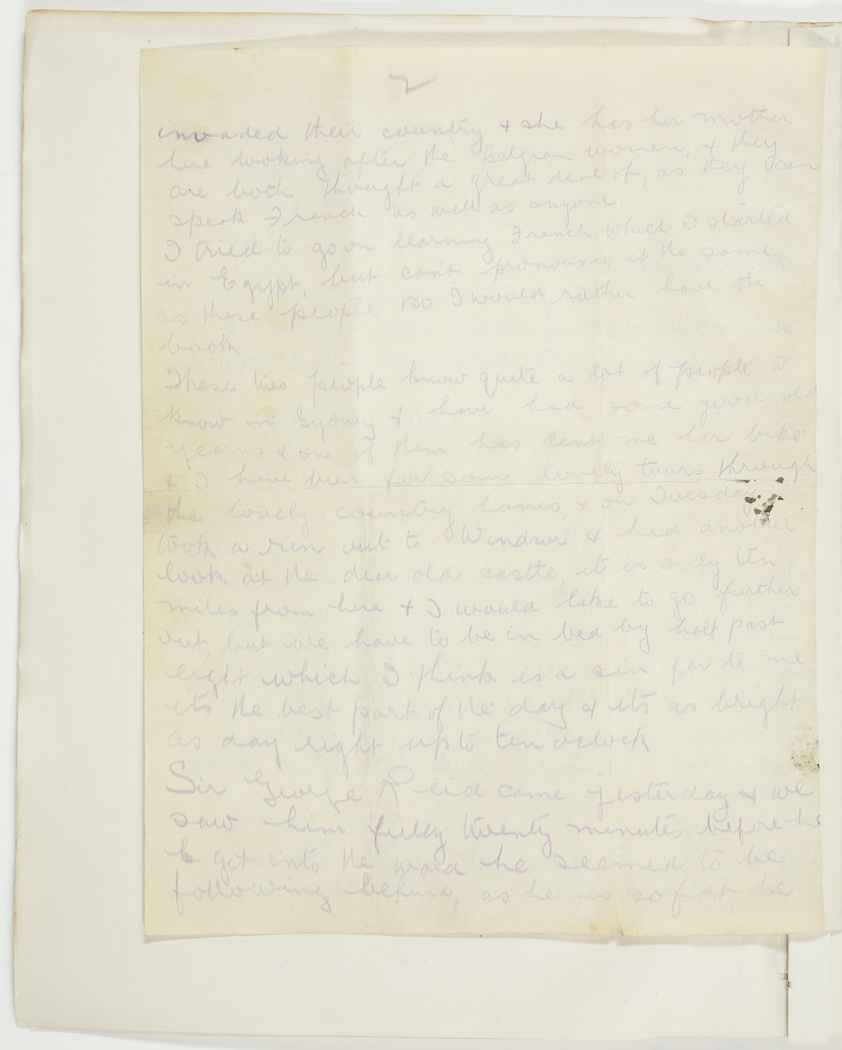 2
invaded their country & she has her mother
here looking after the Belgian women, & they
are both thought a great deal of, as they can
speak French as well as anyone.
I tried to go on learning French which I started
in Egypt, but can't pronounce it the same
as these people so I would rather have the
book
These two people know quite a lot of people I
know in Sydney & have had some good old
yearns & one of them has lent me her bike
& I have been for some lovely tours through
the lovely country lanes, & on Tuesday
took a run out to Windsor & had another
look at the dear old castle, it is only ten
miles from here & I would like to go further
out, but we have to be in bed by half past
eight which I think is a sin for to me
its the best part of the day & its as bright
as day right up to ten oclock
Sir George Reid came yesterday & we
saw him fully twenty minutes before he
got into the ward he seemed to be
following behind, as he is so fat, he